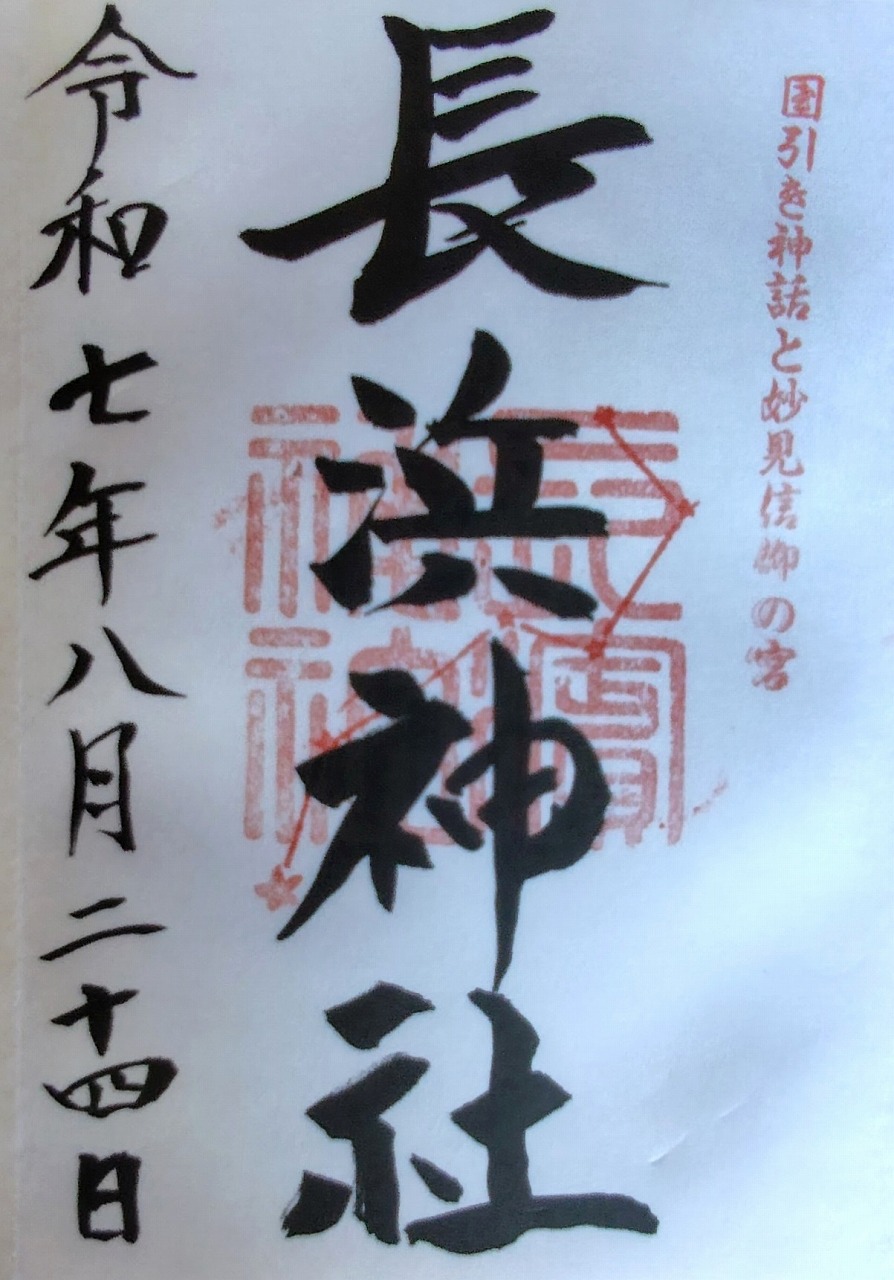 國引き神話と妙見信仰の宮
長浜神社
令和七年八月二十四日